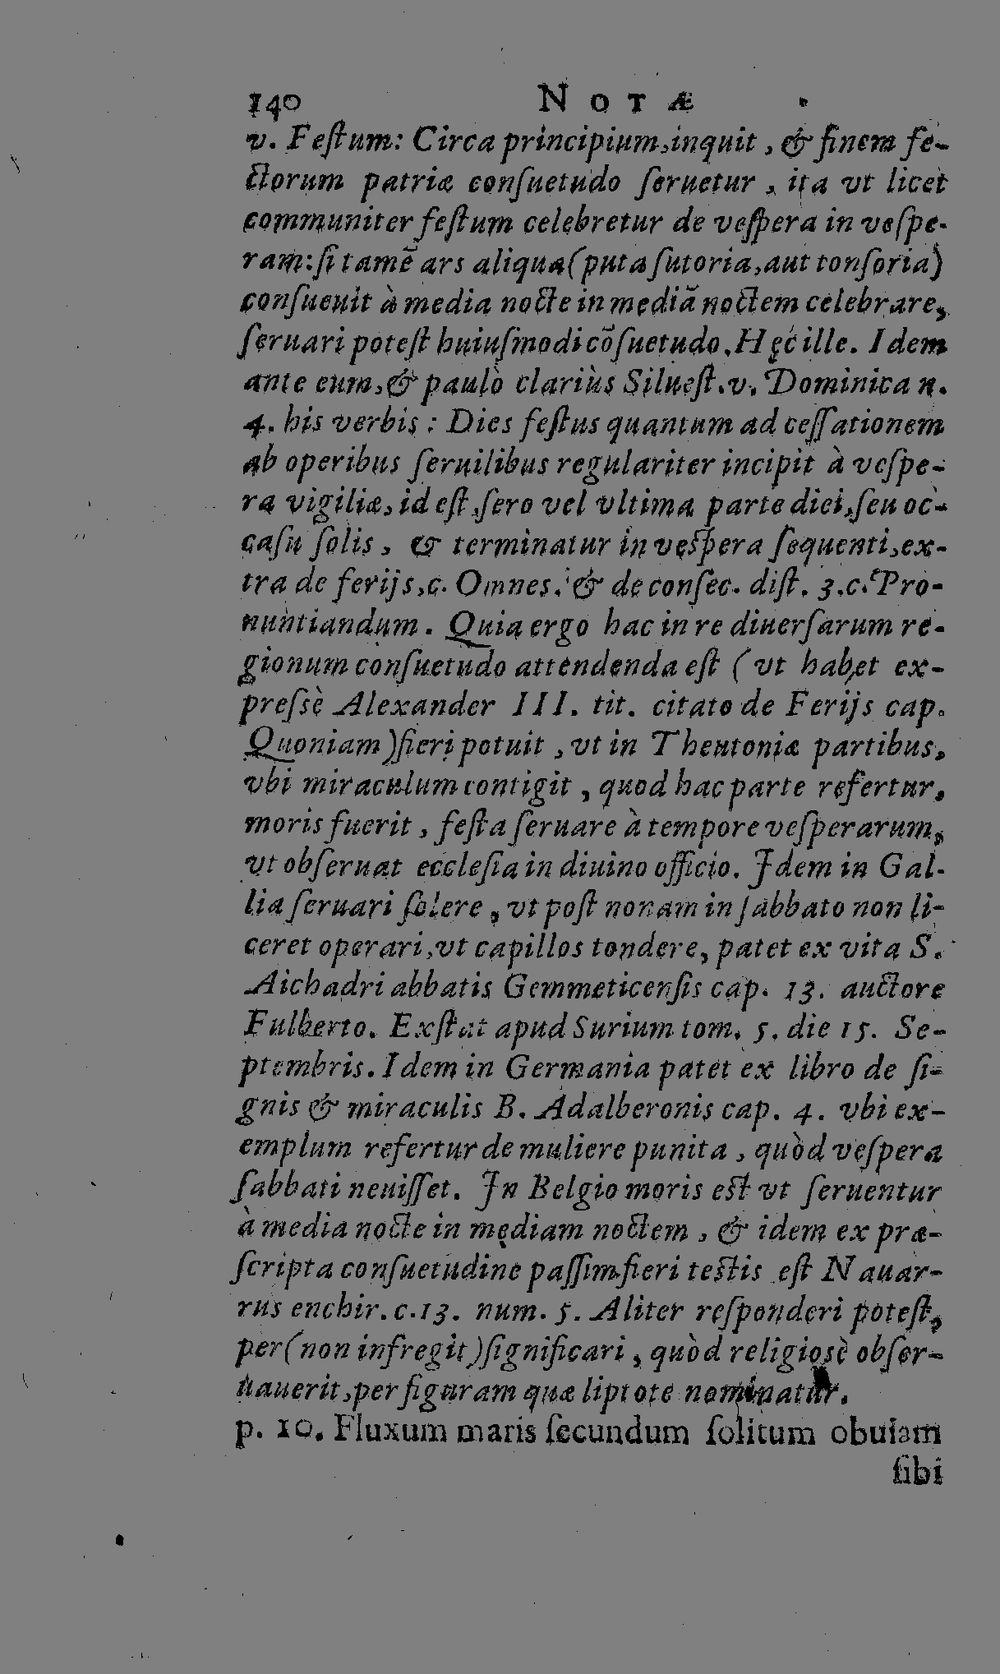 140 NOTÆ
v. Feſtum: Circa principium, inquit, & finem fe-
ctorum patriæ conſuetudo ſeruetur, ita vt licet
communiter feſtum celebretur de veſpera in veſpe-
ram: ſi tamē ars aliqua (puta ſutoria, aut tonſoria)
conſueuit à media nocte in mediā noctem celebrare,
ſeruari poteſt huiuſmodi cōſuetudo. Hęc ille. Idem
ante eum, & paulò clariùs Silueſt. v. Dominica n.
4. his verbis: Dies feſtus quantum ad ceſſationem
ab operibus ſeruilibus regulariter incipit à veſpe-
ra vigiliæ, id eſt, ſero vel vltima parte diei, ſeu oc-
caſu ſolis, & terminatur in veſpera ſequenti, ex-
tra de ferijs, c. Omnes. & de conſec. diſt. 3. c. Pro-
nuntiandum. Quia ergo hac in re diuerſarum re-
gionum conſuetudo attendenda eſt (vt habet ex-
preſsè Alexander III. tit. citato de Ferijs cap.
Quoniam) fieri potuit, vt in Theutoniæ partibus,
vbi miraculum contigit, quod hac parte refertur,
moris fuerit, feſta ſeruare à tempore veſperarum,
vt obſeruat eccleſia in diuino officio. Idem in Gal-
lia ſeruari ſolere, vt poſt nonam in ſabbato non li-
ceret operari, vt capillos tondere, patet ex vita S.
Aichadri abbatis Gemmeticenſis cap. 13. auctore
Fulberto. Exſtat apud Surium tom. 5. die 15. Se-
ptembris. Idem in Germania patet ex libro de ſi-
gnis & miraculis B. Adalberonis cap. 4. vbi ex-
emplum refertur de muliere punita, quòd veſpera
ſabbati neuiſſet. In Belgio moris eſt vt ſeruentur
à media nocte in mediam noctem, & idem ex præ-
ſcripta conſuetudine paſſim fieri teſtis eſt Nauar-
rus enchir. c. 13. num. 5. Aliter reſponderi poteſt,
per (non infregit) ſignificari, quòd religiosè obſer-
uauerit, per figuram quæ liptote nominatur.
p. 10. Fluxum maris ſecundum ſolitum obuiam
ſibi